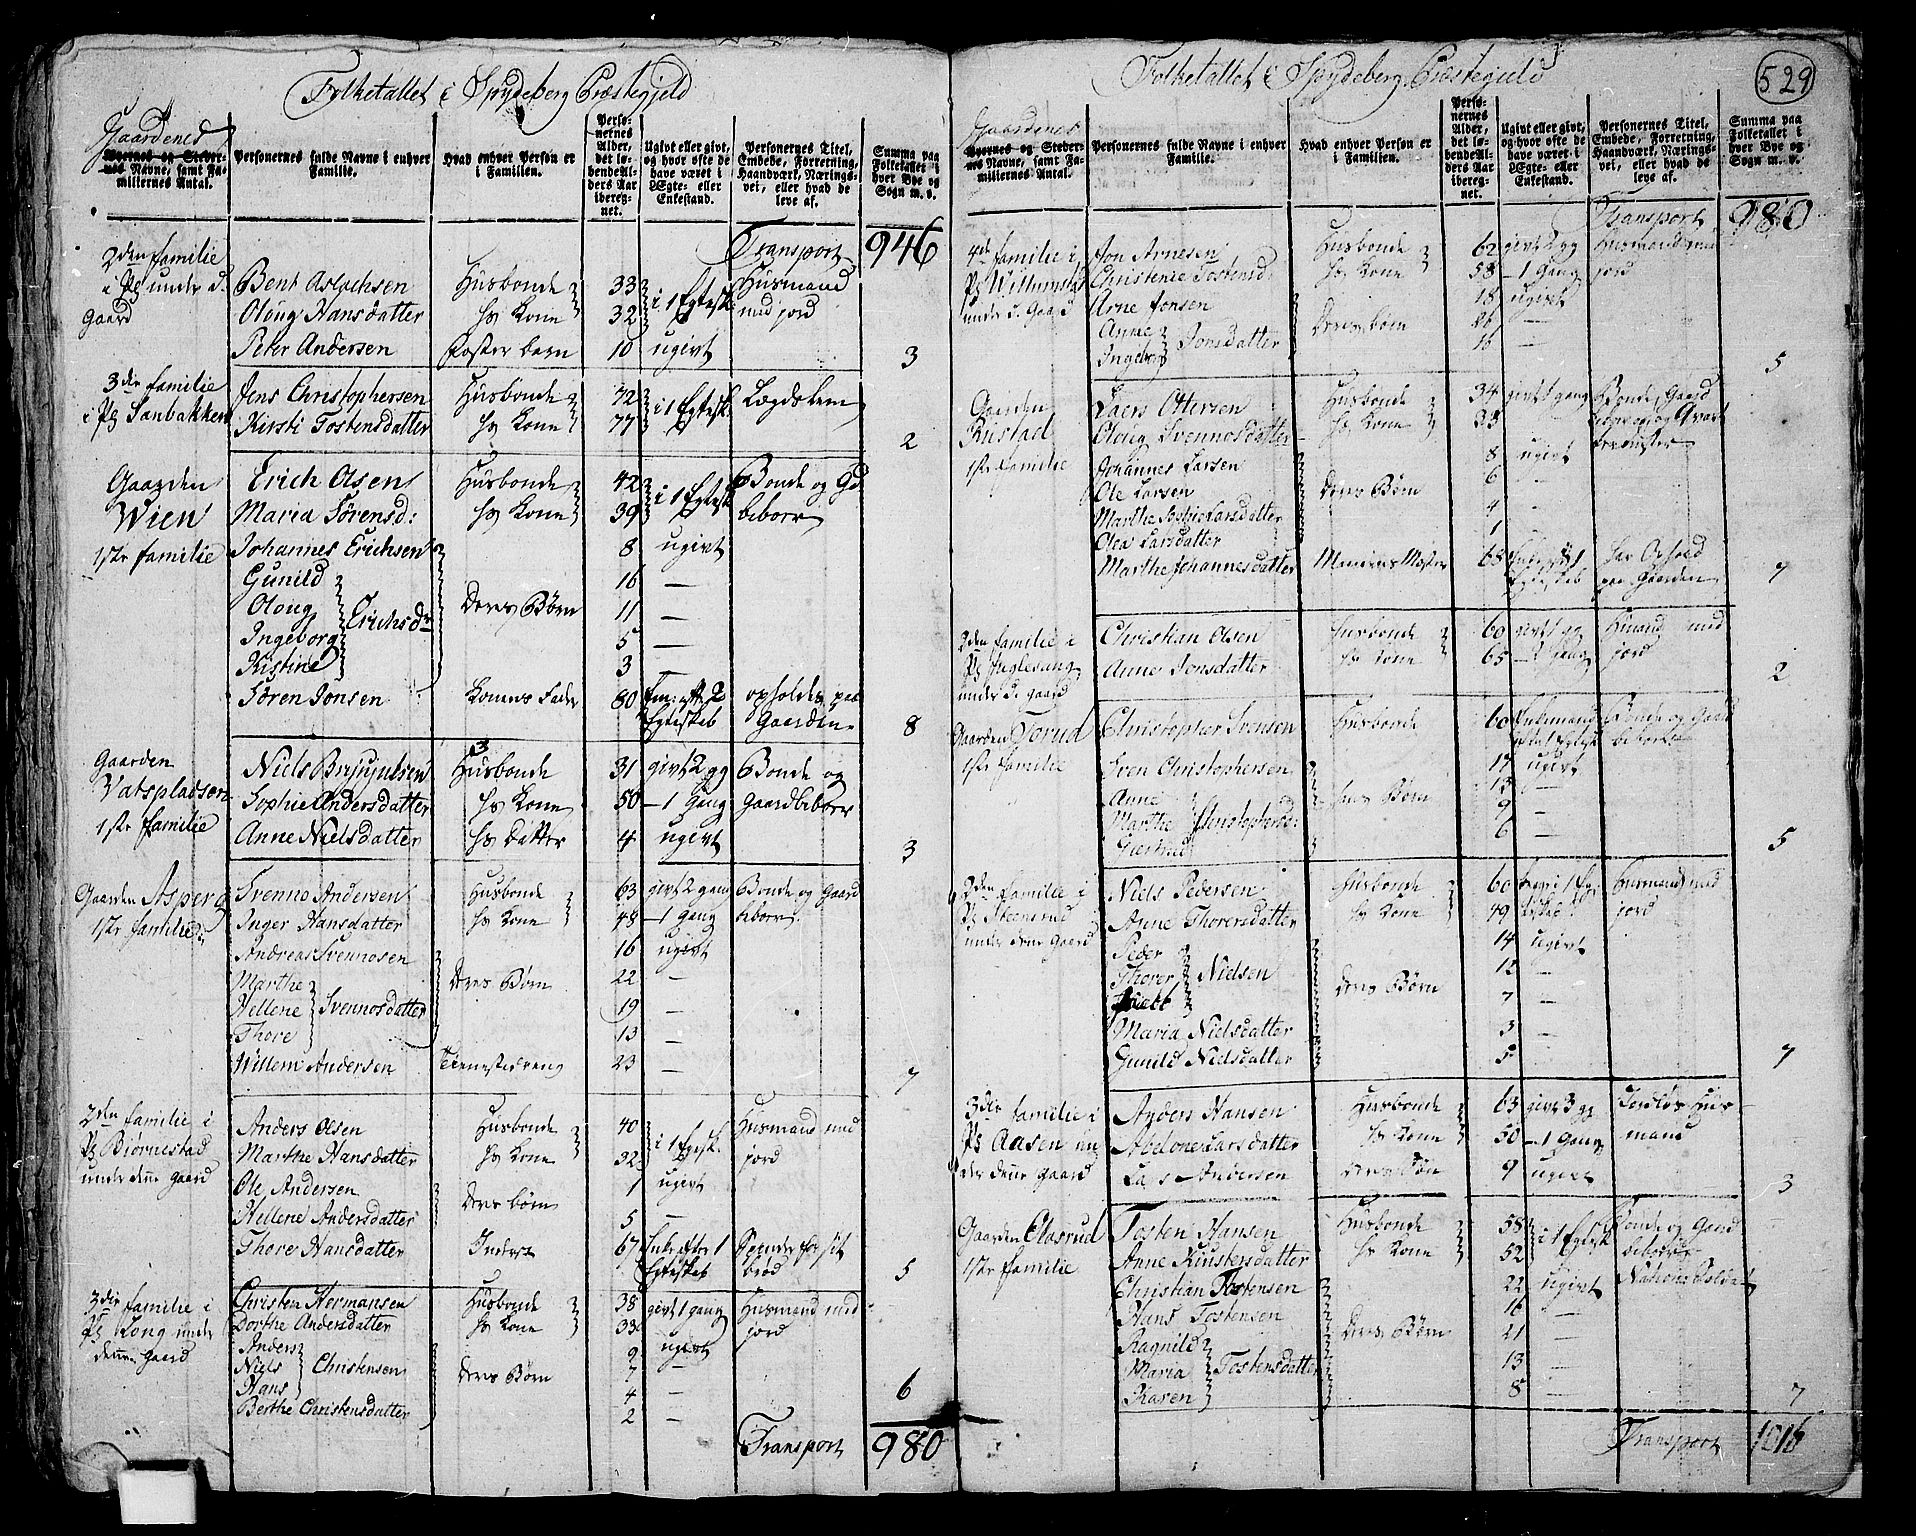 529
Folketallet i Spydeberg Præstegjeld
Gaardenes
Byernes og Stedernes Navne, samt Familiernes Antal.
Personernes fulde Navne i enhver Familie.
Hvad enhver Person er i Familien.
Personernes Alder, det løbende Alders Aar iberegnet.
Ugivt eller givt, og hvor ofte de have været i Ægte- eller Enkestand.
Personernes Titel, Embede, Forretning, Haandværk, Næringsvei, eller hvad de leve af.
Summa paa Folketallet i hver Bye og Sogn m. v.
Transport 946
2den familie
i Pl under d. Gaard
Bent Aslachsen Husbonde 33 i 1 Egtesk. Husmand
Oloug Hansdatter hs Kone 32 med jord
Peter Andersen Foster barn 10 ugivt 3
3die familie
i Pl Sanbakken
Jens Christophersen Husbonde 72 i 1 Egtesk. Lægdslem
Kirsti Tostensdatter hs Kone 77 2
Gaarden
Wien
1ste familie
Erich Olsen Husbonde 42 i 1 Egtesk. Bonde og Gd
Maria Sørensd: hs Kone 39 beboer
Johannes Erichsen 8 ugivt
Gunild 16 —
Oloug Erichsdr Deres Børn 11 —
Ingeborg 5 —
Kistine 3 —
Søren Jonsen Konens Fader 80 Enm: efter 2 opholdes paa
Egteskab Gaarden 8
Gaarden
Vatspladsen
1ste familie
Niels Brynjulsen Husbonde 31 givt 2 gg Bonde og
Sophie Andersdatter hs Kone 50 — 1 Gang Gaardbeboer
Anne Nielsdatter hs Datter 4 ugivt 3
Gaarden Asperg
1ste familie
Svenno Andersen Husbonde 63 givt 2 gang Bonde og Gaard
Inger Hansdatter hs Kone 48 — 1 Gang beboer
Andreas Svennosen 16 ugivt
Marthe Deres Børn 22 —
Hellene Svennosdatter 19 —
Thore 13 —
Willem Andersen Tienestedreng 23 — 7
2den familie i
Pl Biørnestad
under denne Gaard
Anders Olsen Husbonde 40 i 1 Egtesk. Husmand med
Marthe Hansdatter hs Kone 32 jord
Ole Andersen Deres børn 1 ugivt
Hellene Andersdatter 5 —
Thore Hansdatter Inderst 67 Enke efter 1 Spinder for sit
Egteskab brød 5
3die familie i
Pl Long under
denne Gaard
Christen Hermansen Husbonde 38 givt 1 gang Husmand med
Dorthe Andersdatter hs Kone 33 jord
Anders 9 ugivt
Niels Christensen Deres Børn 7 —
Hans 4 —
Berthe Christensdatter 2 — 6
Transport 980
Folketallet i Spydeberg Præstegjeld
Gaardenes
Byernes og Stedernes Navne, samt Familiernes Antal.
Personernes fulde Navne i enhver Familie.
Hvad enhver Person er i Familien.
Personernes Alder, det løbende Alders Aar iberegnet.
Ugivt eller givt, og hvor ofte de have været i Ægte- eller Enkestand.
Personernes Titel, Embede, Forretning, Haandværk, Næringsvei, eller hvad de leve af.
Summa paa Folketallet i hver Bye og Sogn m. v.
Transport 980
4de familie i
under d. Gaard
Jon Arnesen Husbonde 62 givt 2 gg Husmand med
Christense Tostensd. hs Kone 58 — 1 Gang jord
Arne Jonsen 18 ugivt
Anne Jonsdatter Deres børn 26 —
Ingeborg 16 — 5
Gaarden
Rustad
1ste familie
Laers Ottersen Husbonde 34 givt 1 gang Bonde, Gaard
Oloug Svennosdatter hs Kone 33 beboer og
Johannes Larsen 8 ugivt
Ole Larsen Deres Børn 6 —
Marthe Sophie Larsdatter 4 —
Olea Larsdatter 1 —
Marthe Johannesdatter 68 Enke efter 1 har Ophold
Egteskab paa Gaarden 7
2den familie i
under d. Gaard
Christian Olsen Husbonde 60 givt 1 gg Husmand med
Anne Jonsdatter hs Kone 65 — 2 Gang jord 2
Gaarden
1ste familie
Christopher Svensen Husbonde 60 Enkemand Bonde og Gaard
beboer
Sven Christophersen 17 ugivt
Anne hans Børn 13 —
Marthe Christophersd: 9 —
6 — 5
2den familie i
Pl Steensrud
under denne Gaard
Niels Pedersen Husbonde 60 Husmand med
Anne Thorersdatter hs Kone 49 jord
Peder 14 ugivt
Thorer Nielsen Deres Børn 12 —
7 —
Maria Nielsdatter 3 —
Gunild Nielsdatter 5 — 7
3die familie i
Pl Aasen un-
der denne Gaard
Anders Hansen Husbonde 63 givt 3 gg Jordløs Hus-
Abelone Larsdatter hs Kone 50 — 1 Gang mand
Andersen Deres Søn 9 ugivt 3
Gaarden Claserud
1ste familie
Tosten Hansen Husbonde 58 i 1 Egtesk Bonde og Gaard
Anne Knustersdatter hs Kone 52 beboer
Christian Tostensen 22 ugivt National Soldat
Hans Tostensen 16 —
Ragnild Deres Børn 21 —
Maria Tostensdatter 13 —
Karen 8 — 7
Transport 1016